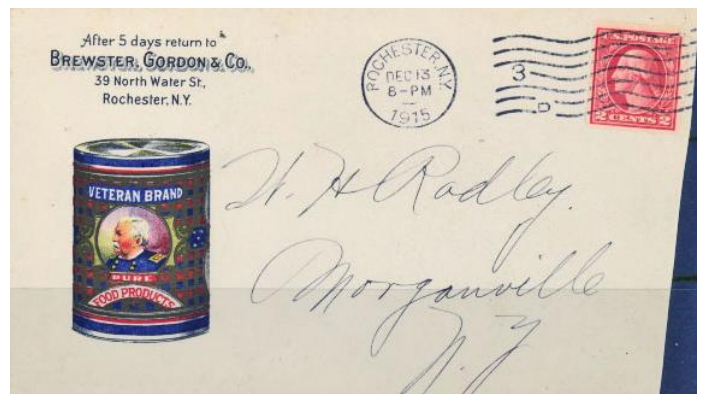 After 5 days return to
BREWSTER, GORDON & CO.,
39 North Water St.,
Rochester, N.Y.
ROCHESTER, N.Y.
DEC 13
8-PM
1915
3
D
U.S. POSTAGE
2 CENTS 2
VETERAN BRAND
PURE
FOOD PRODUCTS
W. H Radley.
Morganville
N. Y